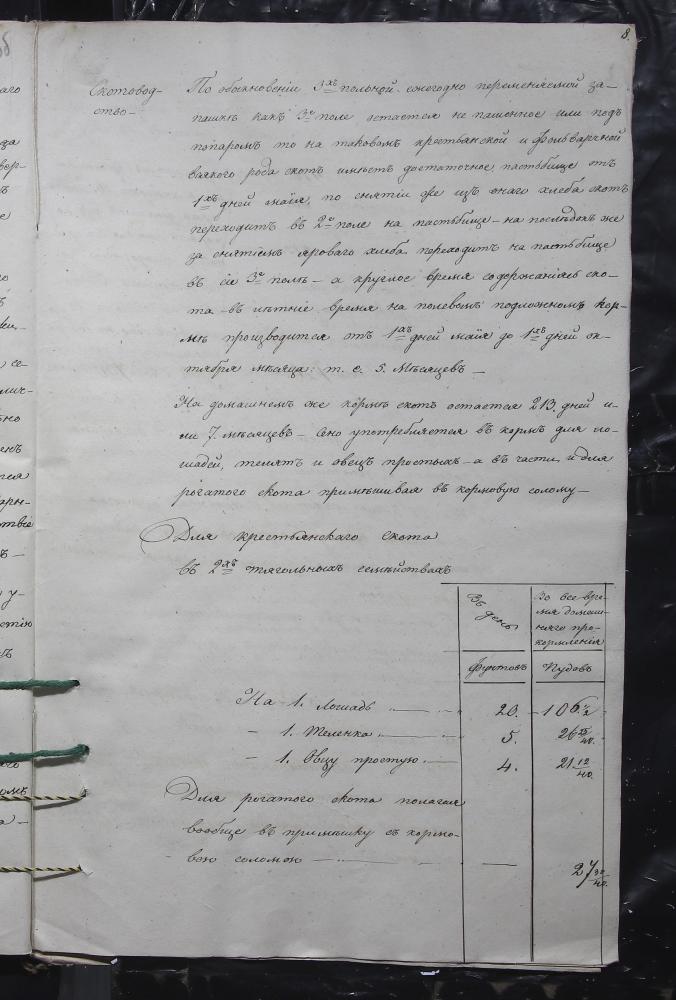 8.
Скотовод-
ство-
По обыкновенію 3хъ польной ежегодно переменяемой за-
пашкѣ какъ 3е поле остается не пашенное или подъ
попаромъ то на таковомъ крестьянской и фольварчной
всякаго рода скотъ имѣетъ достаточное пастьбище отъ
1хъ дней маія, по снятіи же изъ онаго хлеба скотъ
переходитъ въ 2е поле на пастьбище - на последокъ же
за снятіемъ яроваго хлеба переходитъ на пастьбище
въ сіе 3е поле - а круглое время содержанія ско-
та - въ летніе время на полевомъ подложномъ кор-
мѣ производится отъ 1хъ дней маія до 1хъ дней ок-
тября месяца: т. е. 5. Месяцевъ -
На домашнемъ же кормѣ скотъ остается 213. дней и-
ли 7. месяцевъ - Сено употребляется въ кормъ для ло-
шадей, телятъ и овецъ простыхъ - а въ части и для
рогатого скота примешивая въ кормовую солому -
Для крестьянскаго скота
въ 2хъ тягольныхъ семействахъ
Въ день
Во все вре-
мя домаш-
няго про-
кормленія
Фунтовъ
Пудовъ
На 1. Лошадь - 20. - 106 1/2
- 1. Теленка - 5. 26 25/40.
- 1. Овцу простую - 4. 21 12/40.
Для рогатого скота полагая
вообще въ примешку съ кормо-
вою соломою - - 27 30/40.